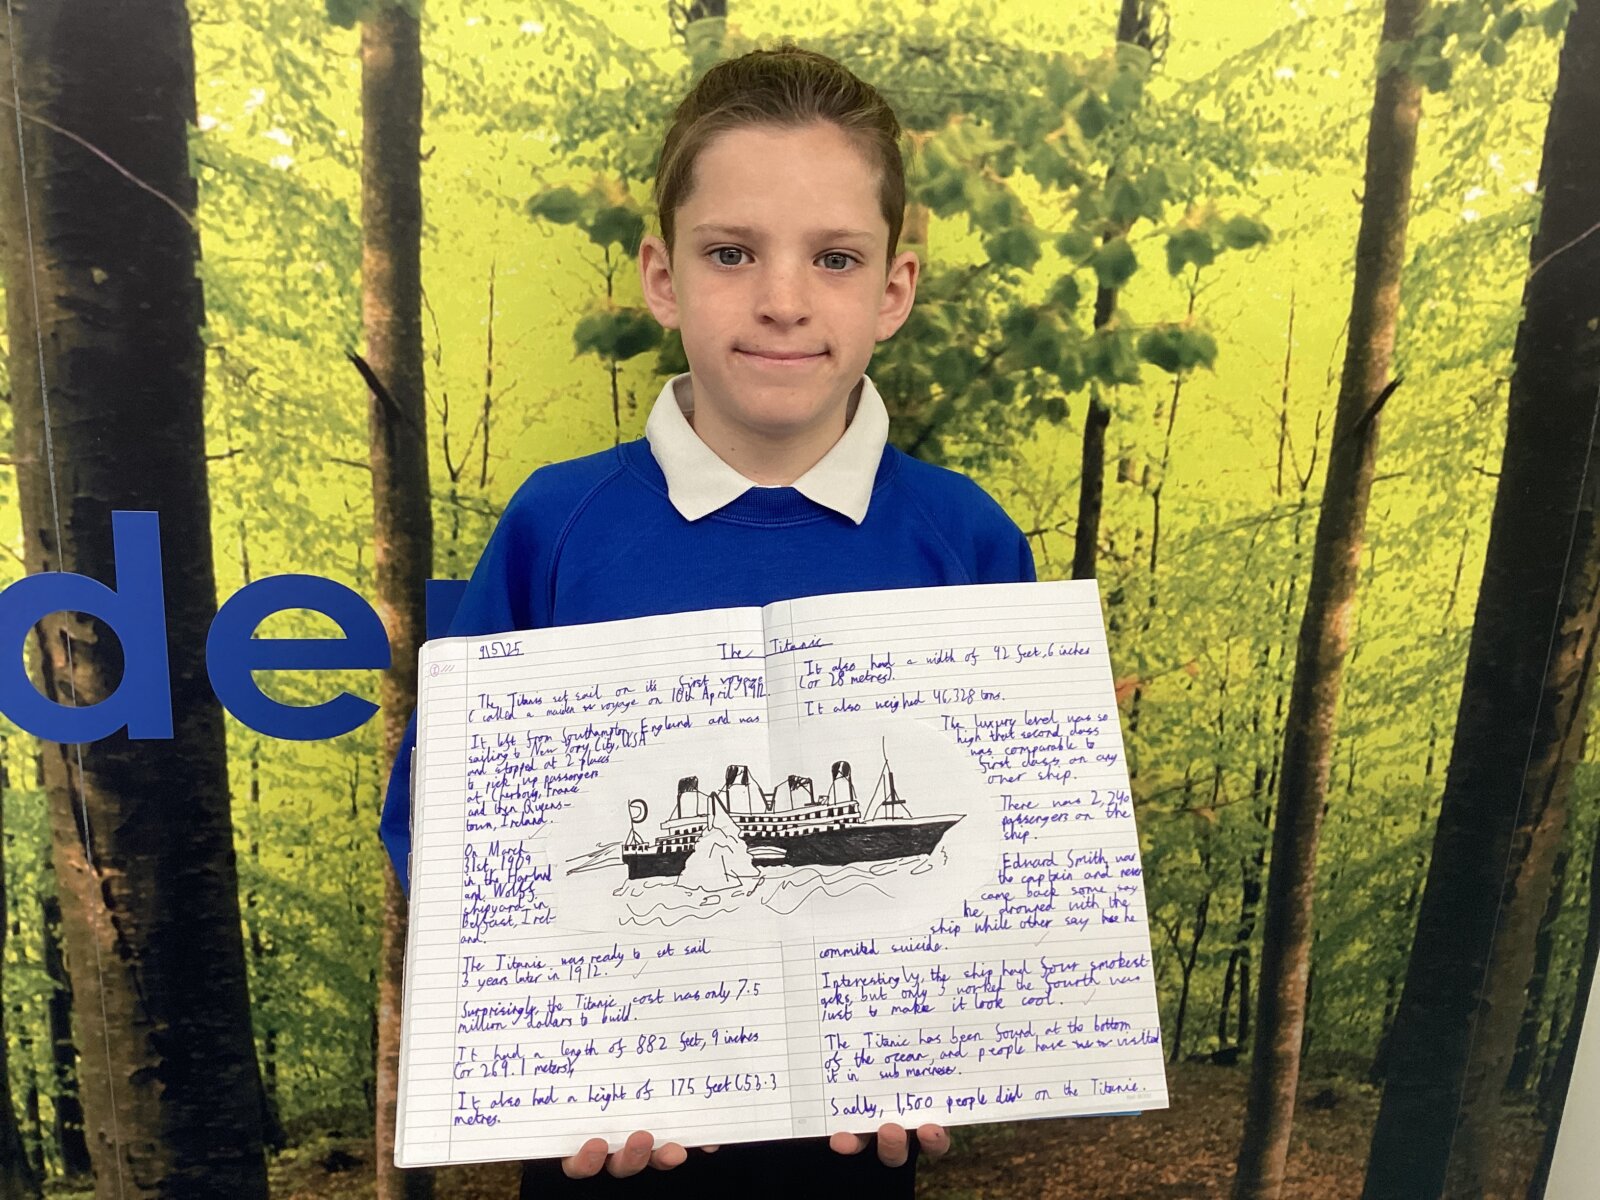 de
9/5/25
The Titanic
The Titanic set sail on its first voyage
(called a maiden voyage on 10th April 1912.
It left from Southampton, England and was
sailing to New York City, USA
and stopped at 2 places
to pick up passengers
at Cherbourg, France
and then Queens-
town, Ireland.
On March
31st 1909
in the Harland
and Wolff
shipyard in
Belfast, Irel-
and.
The Titanic was ready to set sail
3 years later in 1912.
Surprisingly, the Titanic cost was only 7.5
million dollars to build.
It had a length of 882 feet, 9 inches
(or 269.1 meters),
It also had a height of 175 feet (53.3
metres.
It also had a width of 92 feet, 6 inches
(or 28 metres).
It also weighed 46,328 tons.
The luxury level was so
high that second class
was comparable to
first class on any
other ship.
There was 2,240
passengers on the
ship.
Edward Smith was
the captain and never
came back some say
he drowned with the
ship while other say he
commited suicide.
Interestingly, the ship had four smokest-
acks, but only 3 worked the fourth was
just to make it look cool.
The Titanic has been found at the bottom
of the ocean, and people have visited
it in submarines.
Sadly, 1,500 people died on the Titanic.